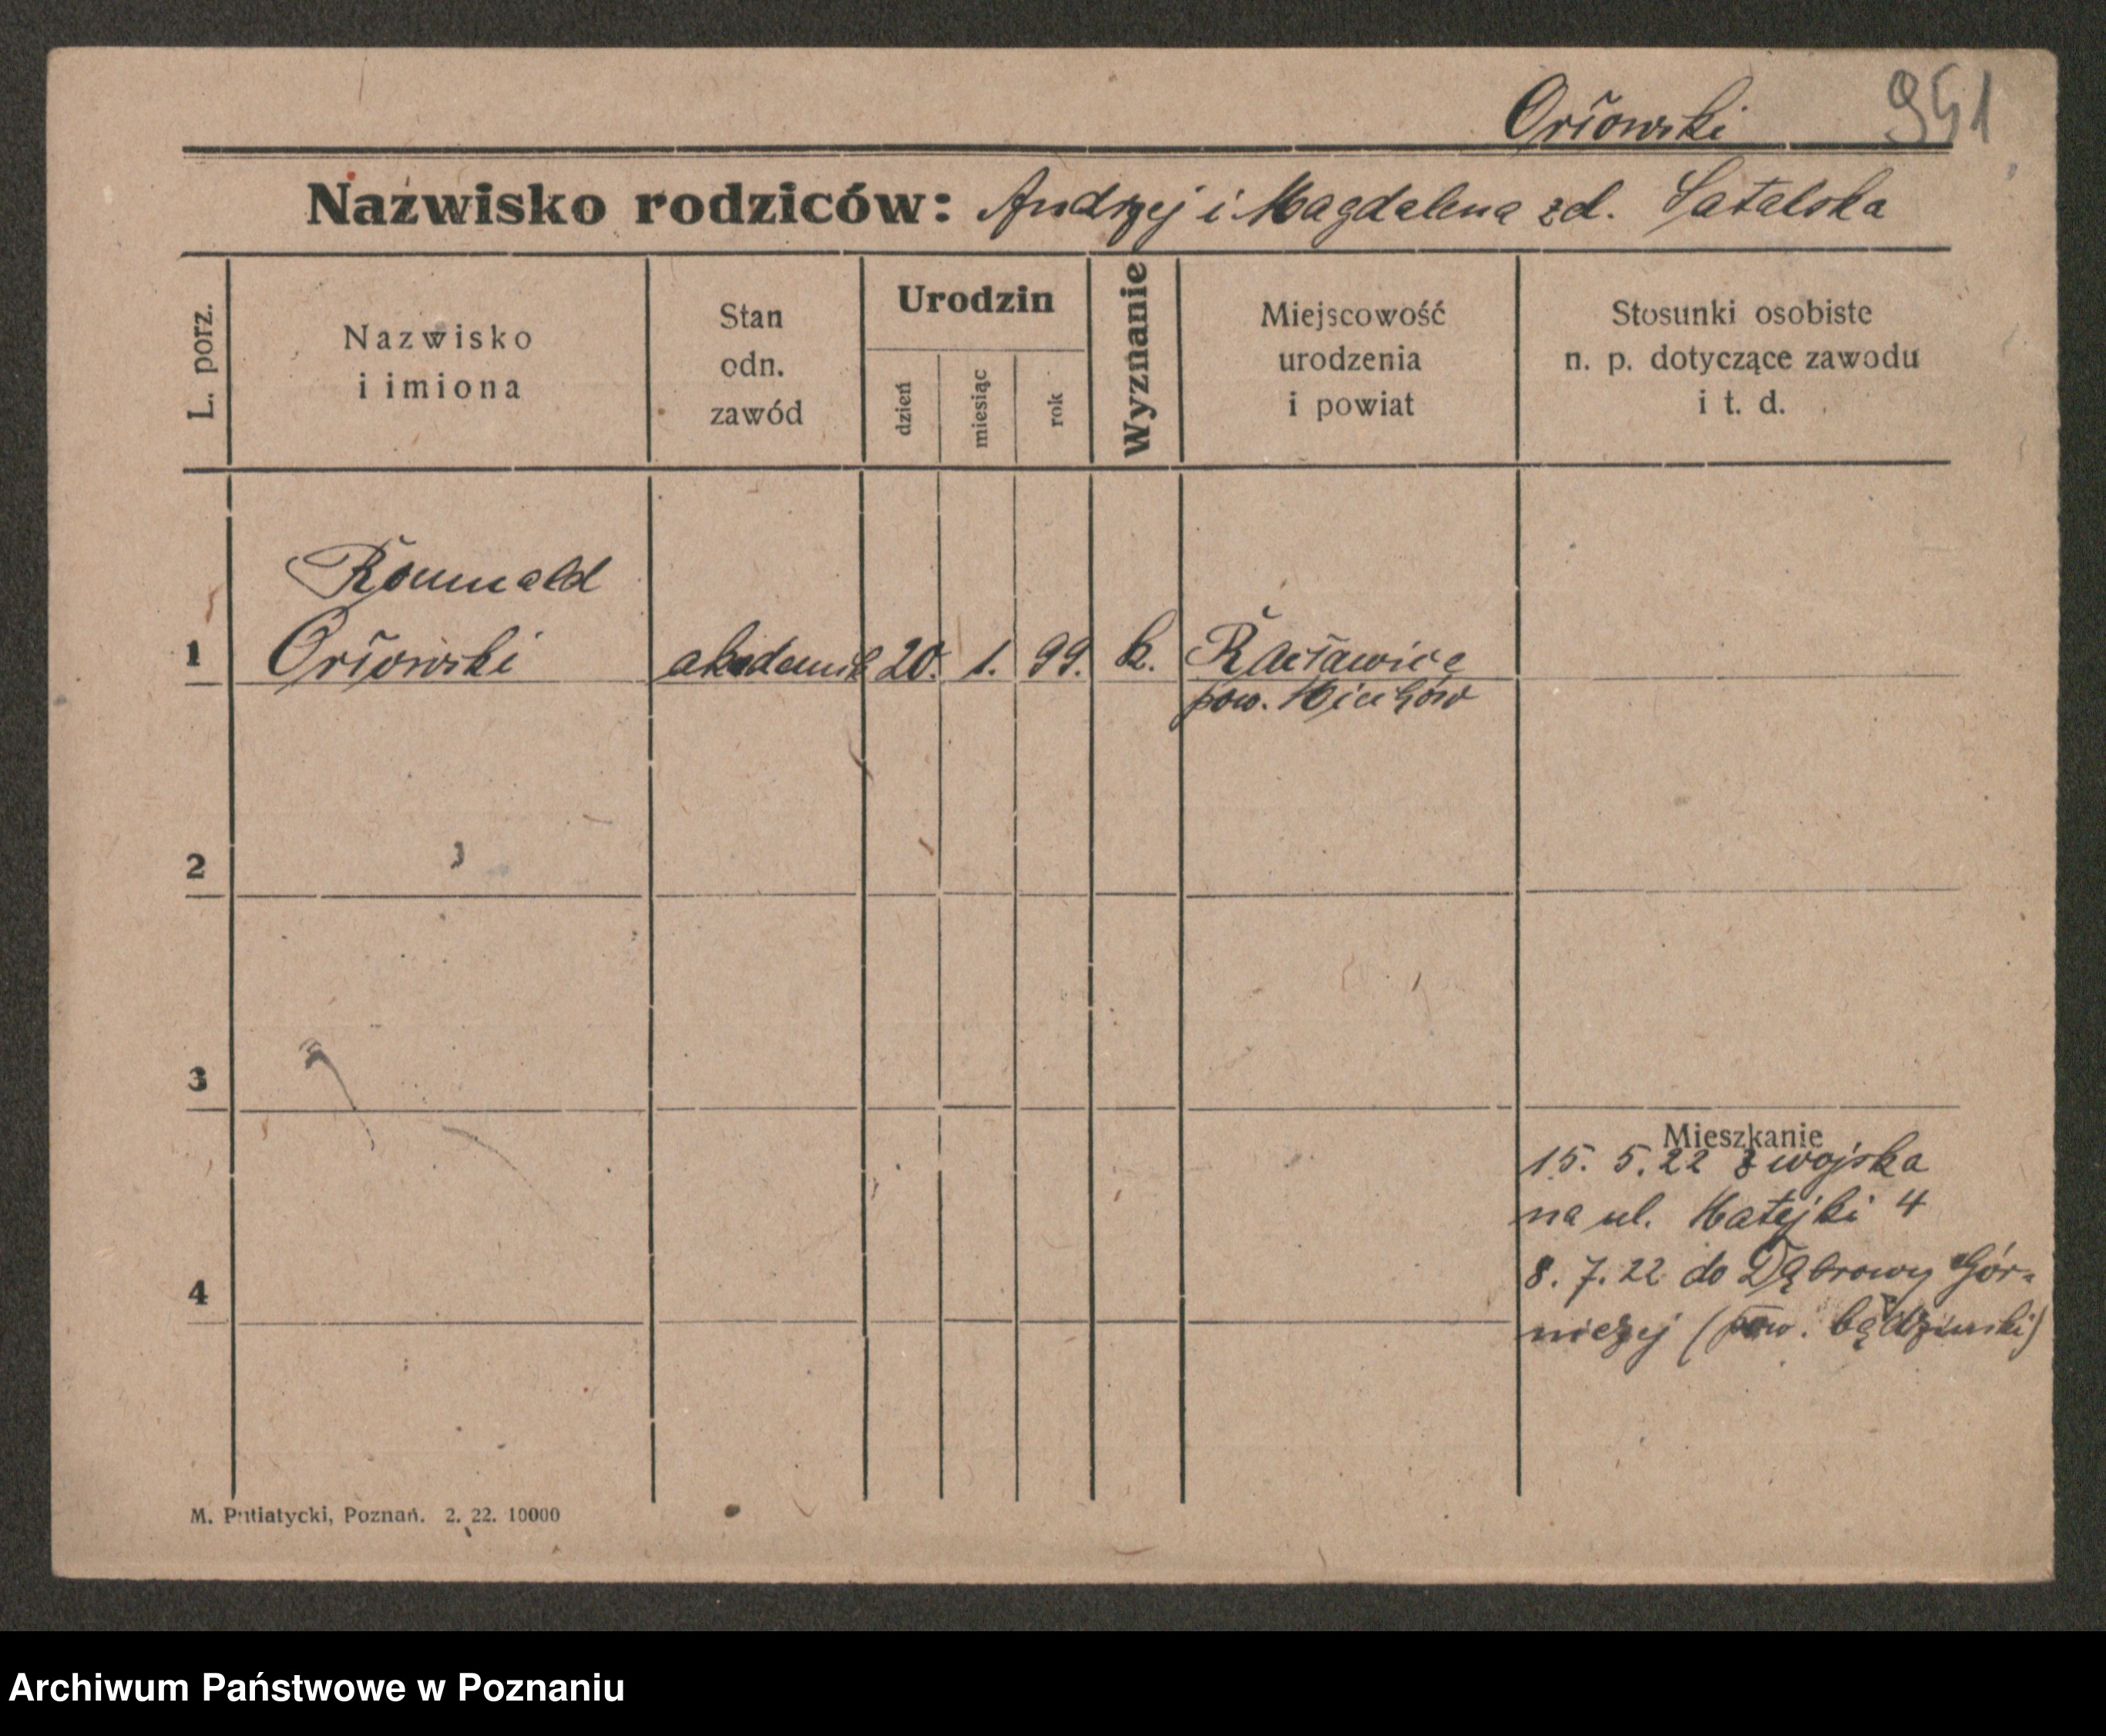 Orłowski 951
Nazwisko rodziców: Andrzej i Magdalena zd. Satalska
L. porz.
Nazwisko
i imiona
Stan
odn.
zawód
Urodzin
dzień
miesiąc
rok
Wyznanie
Miejscowość
urodzenia
i powiat
Stosunki osobiste
n. p. dotyczące zawodu
i t. d.
Romuald
1 Orłowski akademik 20. 1. 99. k. Racławice
pow. Miechów
2
3
Mieszkanie
15. 5. 22 z wojska
na ul. Matejki 4
8. 7. 22 do Dąbrowy Gór-
4
niczej (pow. będziński)
M. Putiatycki, Poznań. 2. 22. 10000
Archiwum Państwowe w Poznaniu